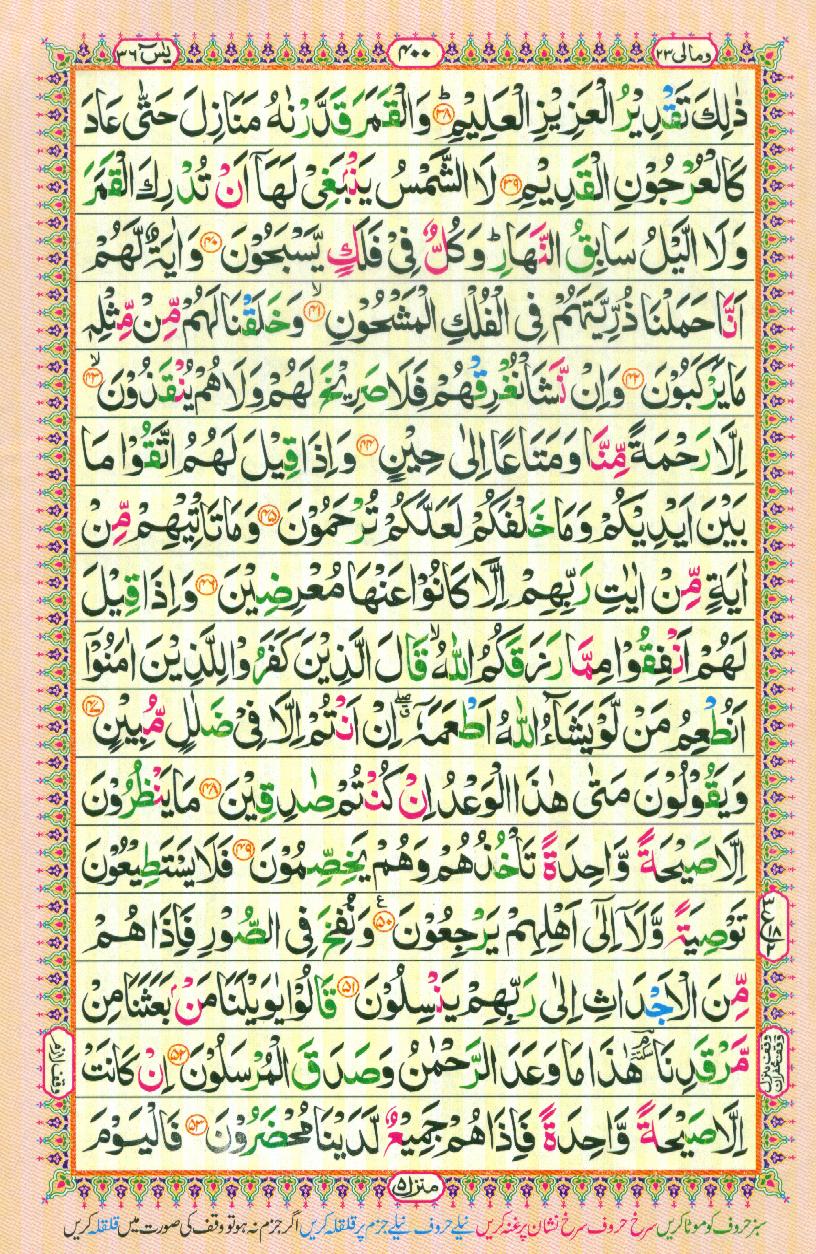 ومالی ۲۳ ۴۰۰ یٰسٓ ۳۶
ذٰلِكَ تَقْدِیْرُ الْعَزِیْزِ الْعَلِیْمِؕ ۳۸ وَالْقَمَرَ قَدَّرْنٰهُ مَنَازِلَ حَتّٰی عَادَ
كَالْعُرْجُوْنِ الْقَدِیْمِ ۳۹ لَا الشَّمْسُ یَنْۢبَغِیْ لَهَاۤ اَنْ تُدْرِكَ الْقَمَرَ
وَلَا الَّیْلُ سَابِقُ النَّهَارِؕ وَكُلٌّ فِیْ فَلَكٍ یَّسْبَحُوْنَ ۴۰ وَاٰیَةٌ لَّهُمْ
اَنَّا حَمَلْنَا ذُرِّیَّتَهُمْ فِی الْفُلْكِ الْمَشْحُوْنِۙ ۴۱ وَخَلَقْنَا لَهُمْ مِّنْ مِّثْلِهٖ
مَا یَرْكَبُوْنَ ۴۲ وَاِنْ نَّشَاْ نُغْرِقْهُمْ فَلَا صَرِیْخَ لَهُمْ وَلَا هُمْ یُنْقَذُوْنَۙ ۴۳
اِلَّا رَحْمَةً مِّنَّا وَمَتَاعًا اِلٰی حِیْنٍ ۴۴ وَاِذَا قِیْلَ لَهُمُ اتَّقُوْا مَا
بَیْنَ اَیْدِیْكُمْ وَمَا خَلْفَكُمْ لَعَلَّكُمْ تُرْحَمُوْنَ ۴۵ وَمَا تَاْتِیْهِمْ مِّنْ
اٰیَةٍ مِّنْ اٰیٰتِ رَبِّهِمْ اِلَّا كَانُوْا عَنْهَا مُعْرِضِیْنَ ۴۶ وَاِذَا قِیْلَ
لَهُمْ اَنْفِقُوْا مِمَّا رَزَقَكُمُ اللّٰهُۙ قَالَ الَّذِیْنَ كَفَرُوْا لِلَّذِیْنَ اٰمَنُوْۤا
اَنُطْعِمُ مَنْ لَّوْ یَشَآءُ اللّٰهُ اَطْعَمَهٗۤ ۖق اِنْ اَنْتُمْ اِلَّا فِیْ ضَلٰلٍ مُّبِیْنٍ ۴۷
وَیَقُوْلُوْنَ مَتٰی هٰذَا الْوَعْدُ اِنْ كُنْتُمْ صٰدِقِیْنَ ۴۸ مَا یَنْظُرُوْنَ
اِلَّا صَیْحَةً وَّاحِدَةً تَاْخُذُهُمْ وَهُمْ یَخِصِّمُوْنَ ۴۹ فَلَا یَسْتَطِیْعُوْنَ
تَوْصِیَةً وَّلَاۤ اِلٰۤی اَهْلِهِمْ یَرْجِعُوْنَ ۵۰ ع وَنُفِخَ فِی الصُّوْرِ فَاِذَا هُمْ
مِّنَ الْاَجْدَاثِ اِلٰی رَبِّهِمْ یَنْسِلُوْنَ ۵۱ قَالُوْا یٰوَیْلَنَا مَنْۢ بَعَثَنَا مِنْ
مَّرْقَدِنَا ٚۘ هٰذَا مَا وَعَدَ الرَّحْمٰنُ وَصَدَقَ الْمُرْسَلُوْنَ ۵۲ اِنْ كَانَتْ
وقف لازم
اِلَّا صَیْحَةً وَّاحِدَةً فَاِذَا هُمْ جَمِیْعٌ لَّدَیْنَا مُحْضَرُوْنَ ۵۳ فَالْیَوْمَ
منزل ۵
سبز حروف کو موٹا کریں سرخ حروف سرخ نشان پر غنہ کریں نیلے حروف نیلے جزم پر قلقلہ کریں اگر جزم نہ ہو تو وقف کی صورت میں قلقلہ کریں